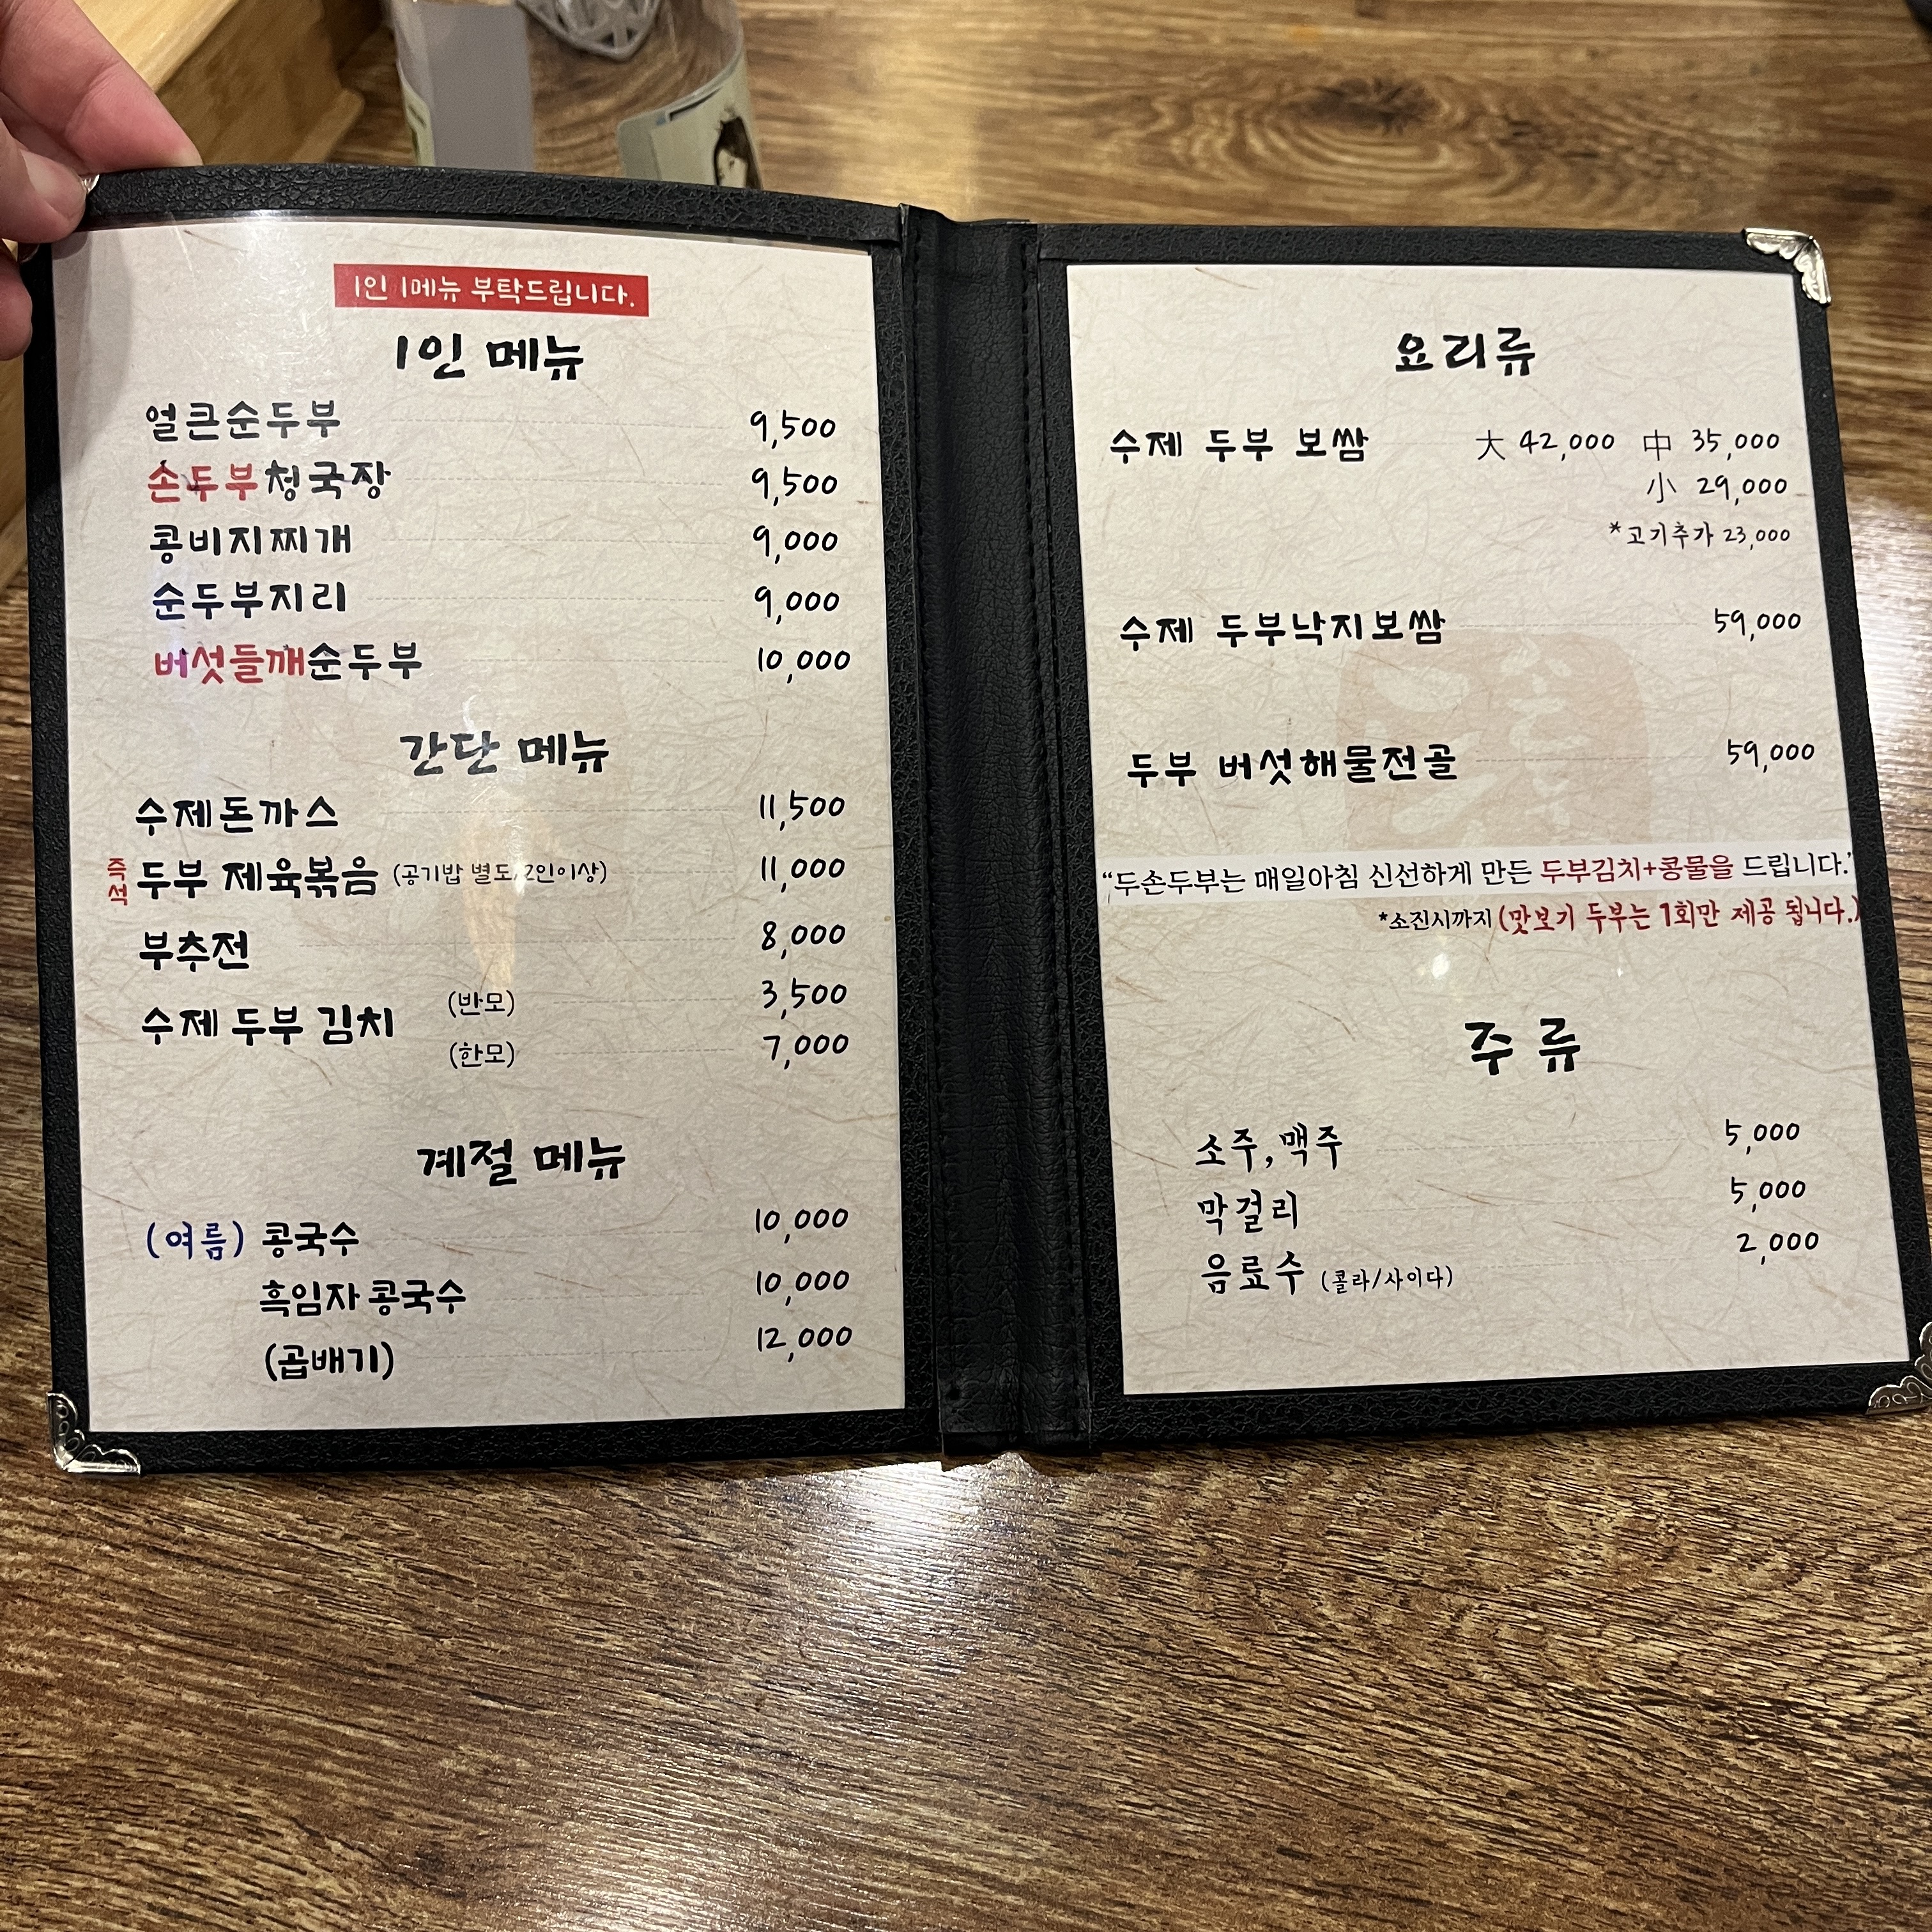 1인 1메뉴 부탁드립니다.
1인 메뉴
얼큰순두부 9,500
손두부청국장 9,500
콩비지찌개 9,000
순두부지리 9,000
버섯들깨순두부 10,000
간단 메뉴
수제돈까스 11,500
즉석 두부 제육볶음 (공기밥 별도/2인이상) 11,000
부추전 8,000
수제 두부 김치 (반모) 3,500
(한모) 7,000
계절 메뉴
(여름) 콩국수 10,000
흑임자 콩국수 10,000
(곱배기) 12,000
요리류
수제 두부 보쌈 大 42,000 中 35,000
小 29,000
*고기추가 23,000
수제 두부낙지보쌈 59,000
두부 버섯해물전골 59,000
“두손두부는 매일아침 신선하게 만든 두부김치+콩물을 드립니다.”
*소진시까지 (맛보기 두부는 1회만 제공 됩니다.)
주류
소주, 맥주 5,000
막걸리 5,000
음료수 (콜라/사이다) 2,000